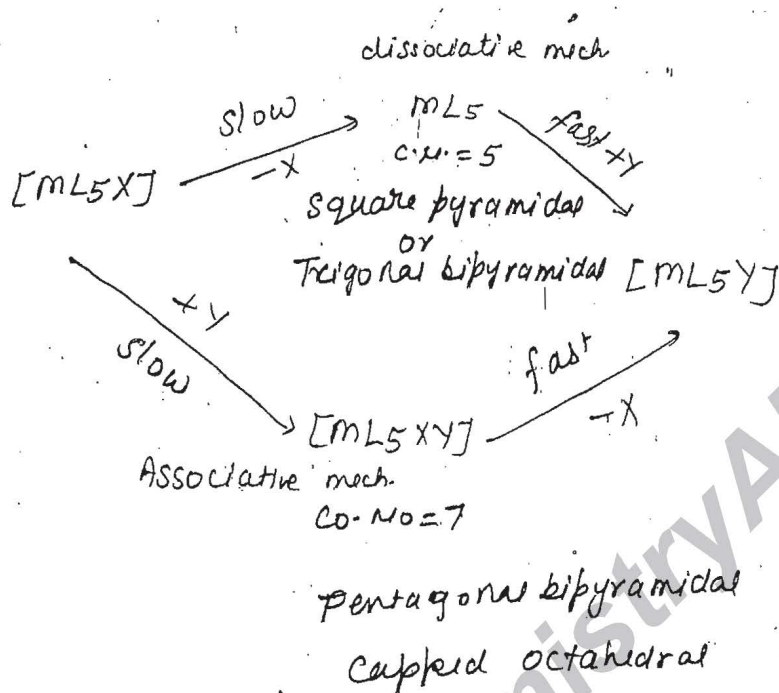 dissociative mech
slow
mL5
fast +Y
-X
C.N. = 5
[mL5X]
square pyramidal
or
Trigonal bipyramidal [mL5Y]
+Y
slow
fast
-X
[mL5XY]
Associative mech.
Co. No = 7
Pentagonal bipyramidal
Capped octahedral